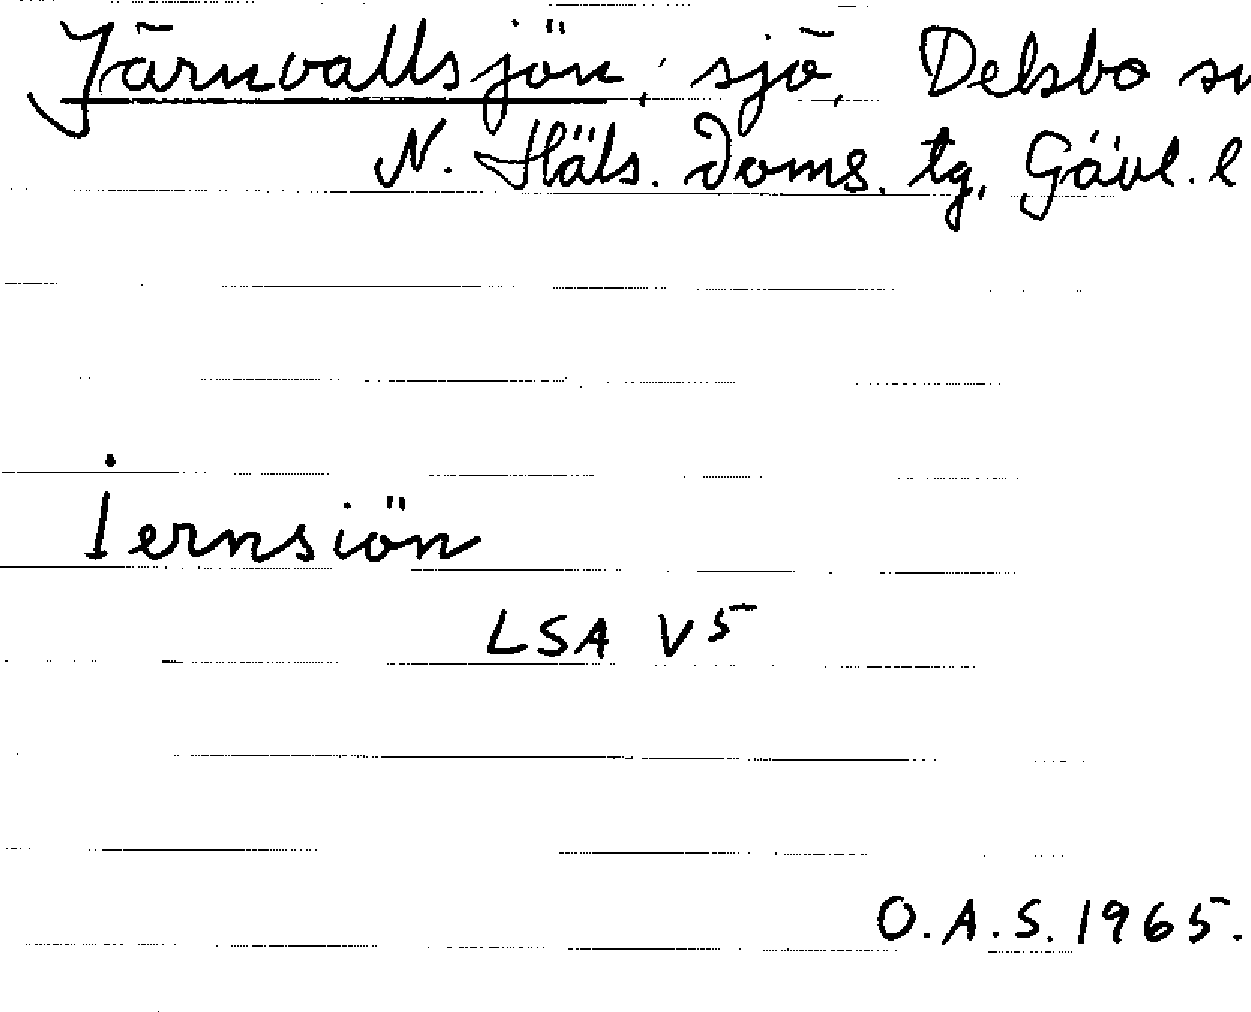 Järnvallsjön, sjö, Delsbo sn
N. Häls. doms. tg, Gävl. l
Iernsiön
LSA V5
O.A.S. 1965.